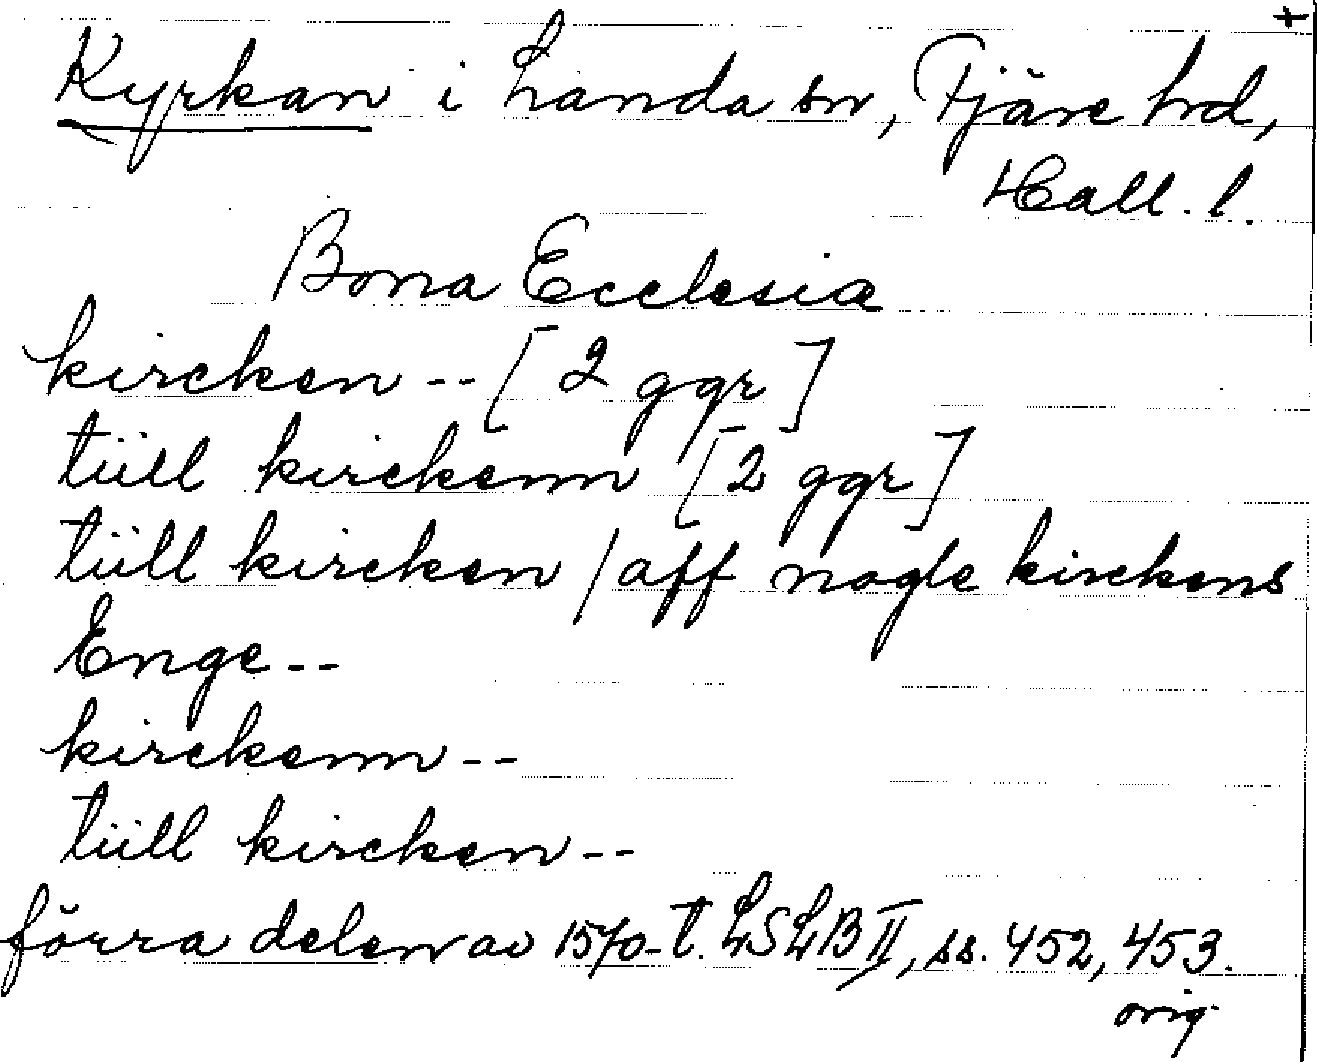 +
Kyrkan i Landa sn, Fjäre hrd,
Hall. l.
Bona Ecclesiæ
kircken -- [2 ggr]
tiill kirckenn [2 ggr]
tiill kircken / aff nogle kirckens
Enge --
kirckenn --
tiill kircken --
förra delen av 1570-t. LSLB II, ss. 452, 453.
orig.